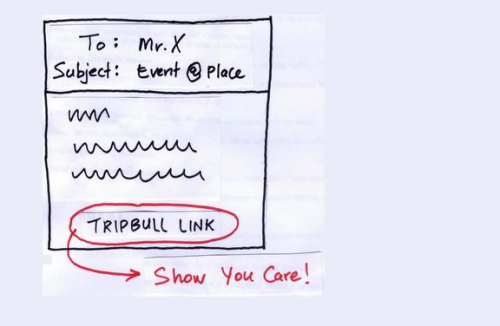 To: Mr.X
Subject: Event @ Place
TRIPBULL LINK
Show You Care!